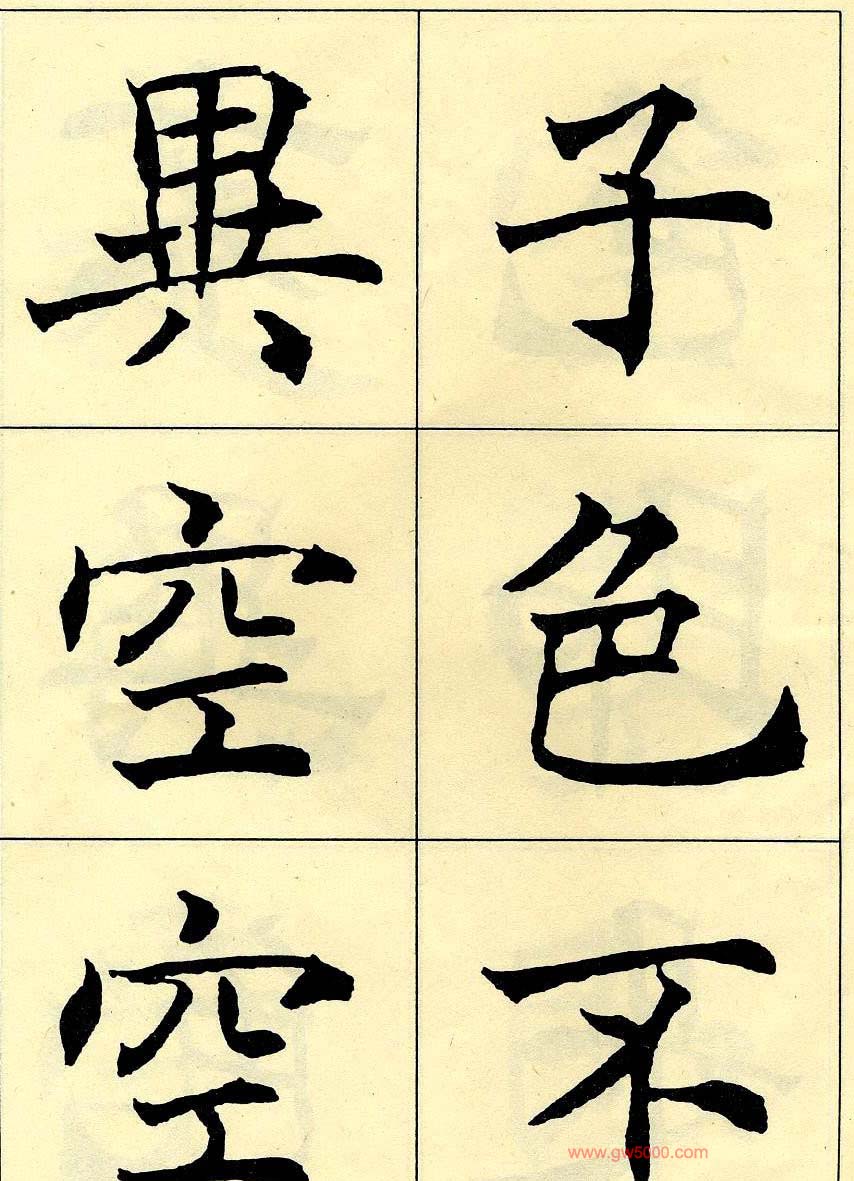 子色不
異空空
www.gw5000.com